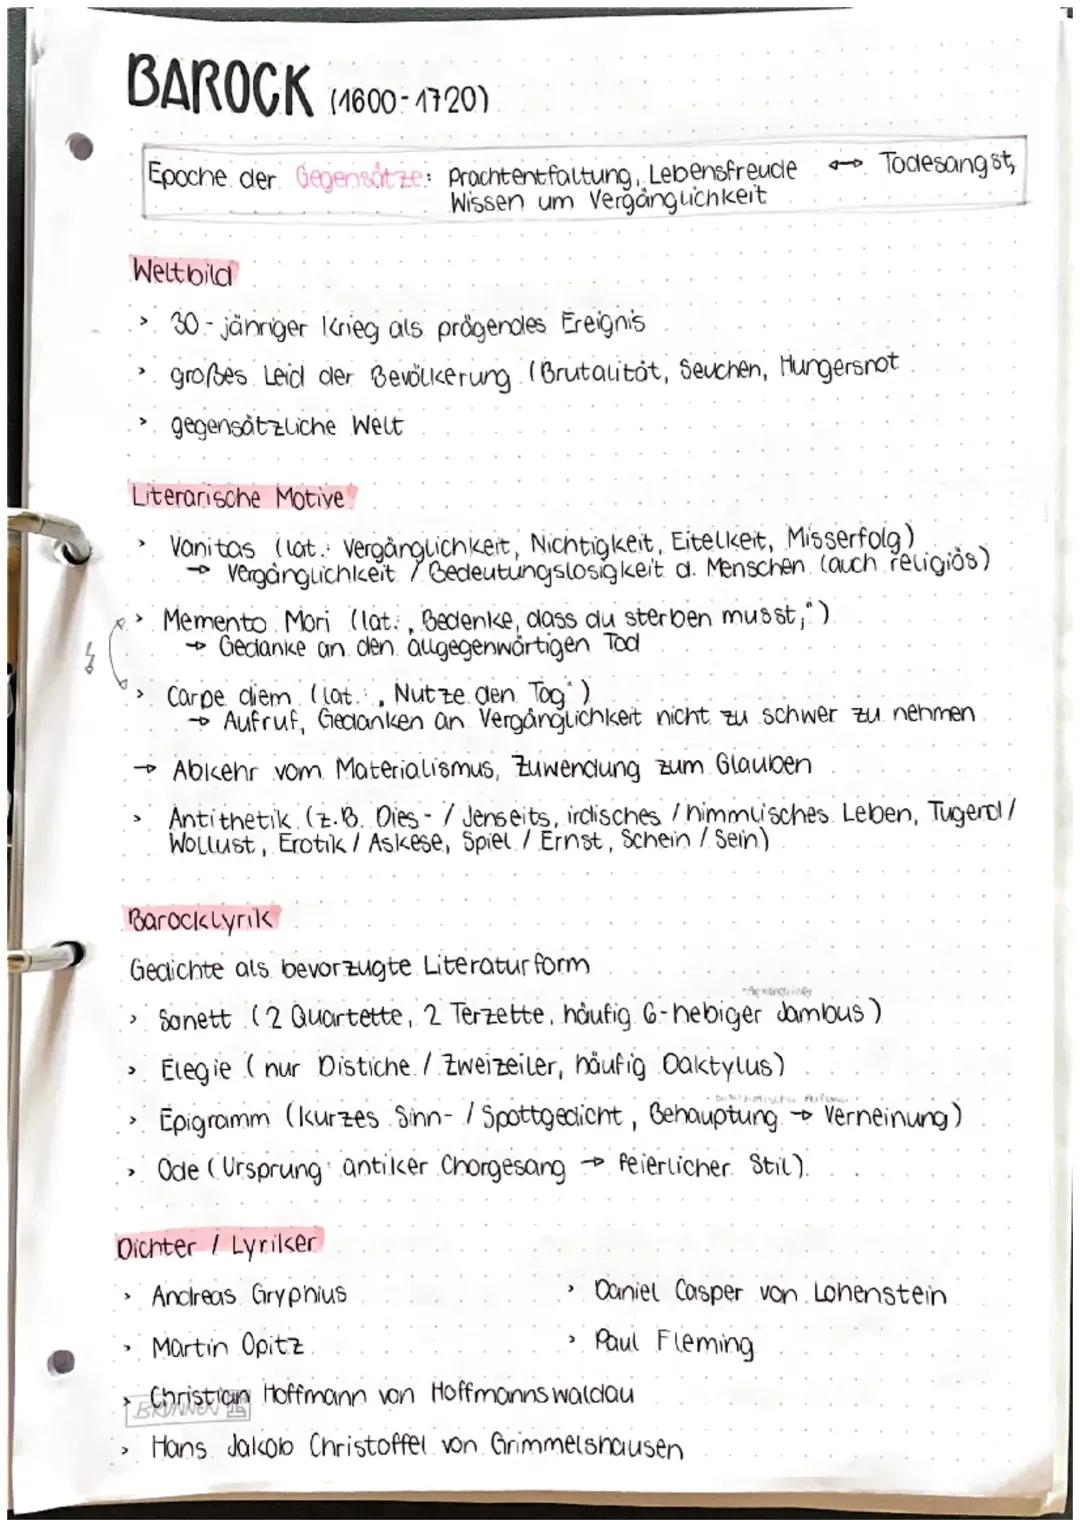 BAROCK (1600-1720)
Epoche der Gegensätze: Prachtentfaltung, Lebensfreude ↔ Todesangst,
Wissen um Vergänglichkeit
Weltbild
> 30-jähriger Krieg als prägendes Ereignis
> großes Leid der Bevölkerung (Brutalität, Seuchen, Hungersnot
> gegensätzliche Welt
Literarische Motive
> Vanitas (lat.: Vergänglichkeit, Nichtigkeit, Eitelkeit, Misserfolg)
→ Vergänglichkeit / Bedeutungslosigkeit d. Menschen (auch religiös)
> Memento Mori (lat.: „Bedenke, dass du sterben musst;“)
→ Gedanke an den allgegenwärtigen Tod
> Carpe diem (lat.: „Nutze den Tag“)
→ Aufruf, Gedanken an Vergänglichkeit nicht zu schwer zu nehmen
→ Abkehr vom Materialismus, Zuwendung zum Glauben
> Antithetik (z.B. Dies- / Jenseits, irdisches / himmlisches Leben, Tugend /
Wollust, Erotik / Askese, Spiel / Ernst, Schein / Sein)
Barocklyrik
Gedichte als bevorzugte Literaturform
> Sonett (2 Quartette, 2 Terzette, häufig 6-hebiger Jambus)
> Elegie (nur Distiche / Zweizeiler, häufig Daktylus)
> Epigramm (kurzes Sinn- / Spottgedicht, Behauptung → Verneinung)
> Ode (Ursprung antiker Chorgesang → feierlicher Stil)
Dichter / Lyriker
> Andreas Gryphius
> Daniel Casper von Lohenstein
> Martin Opitz
> Paul Fleming
> Christian Hoffmann von Hoffmannswaldau
BRUNNEN
> Hans Jakob Christoffel von Grimmelshausen